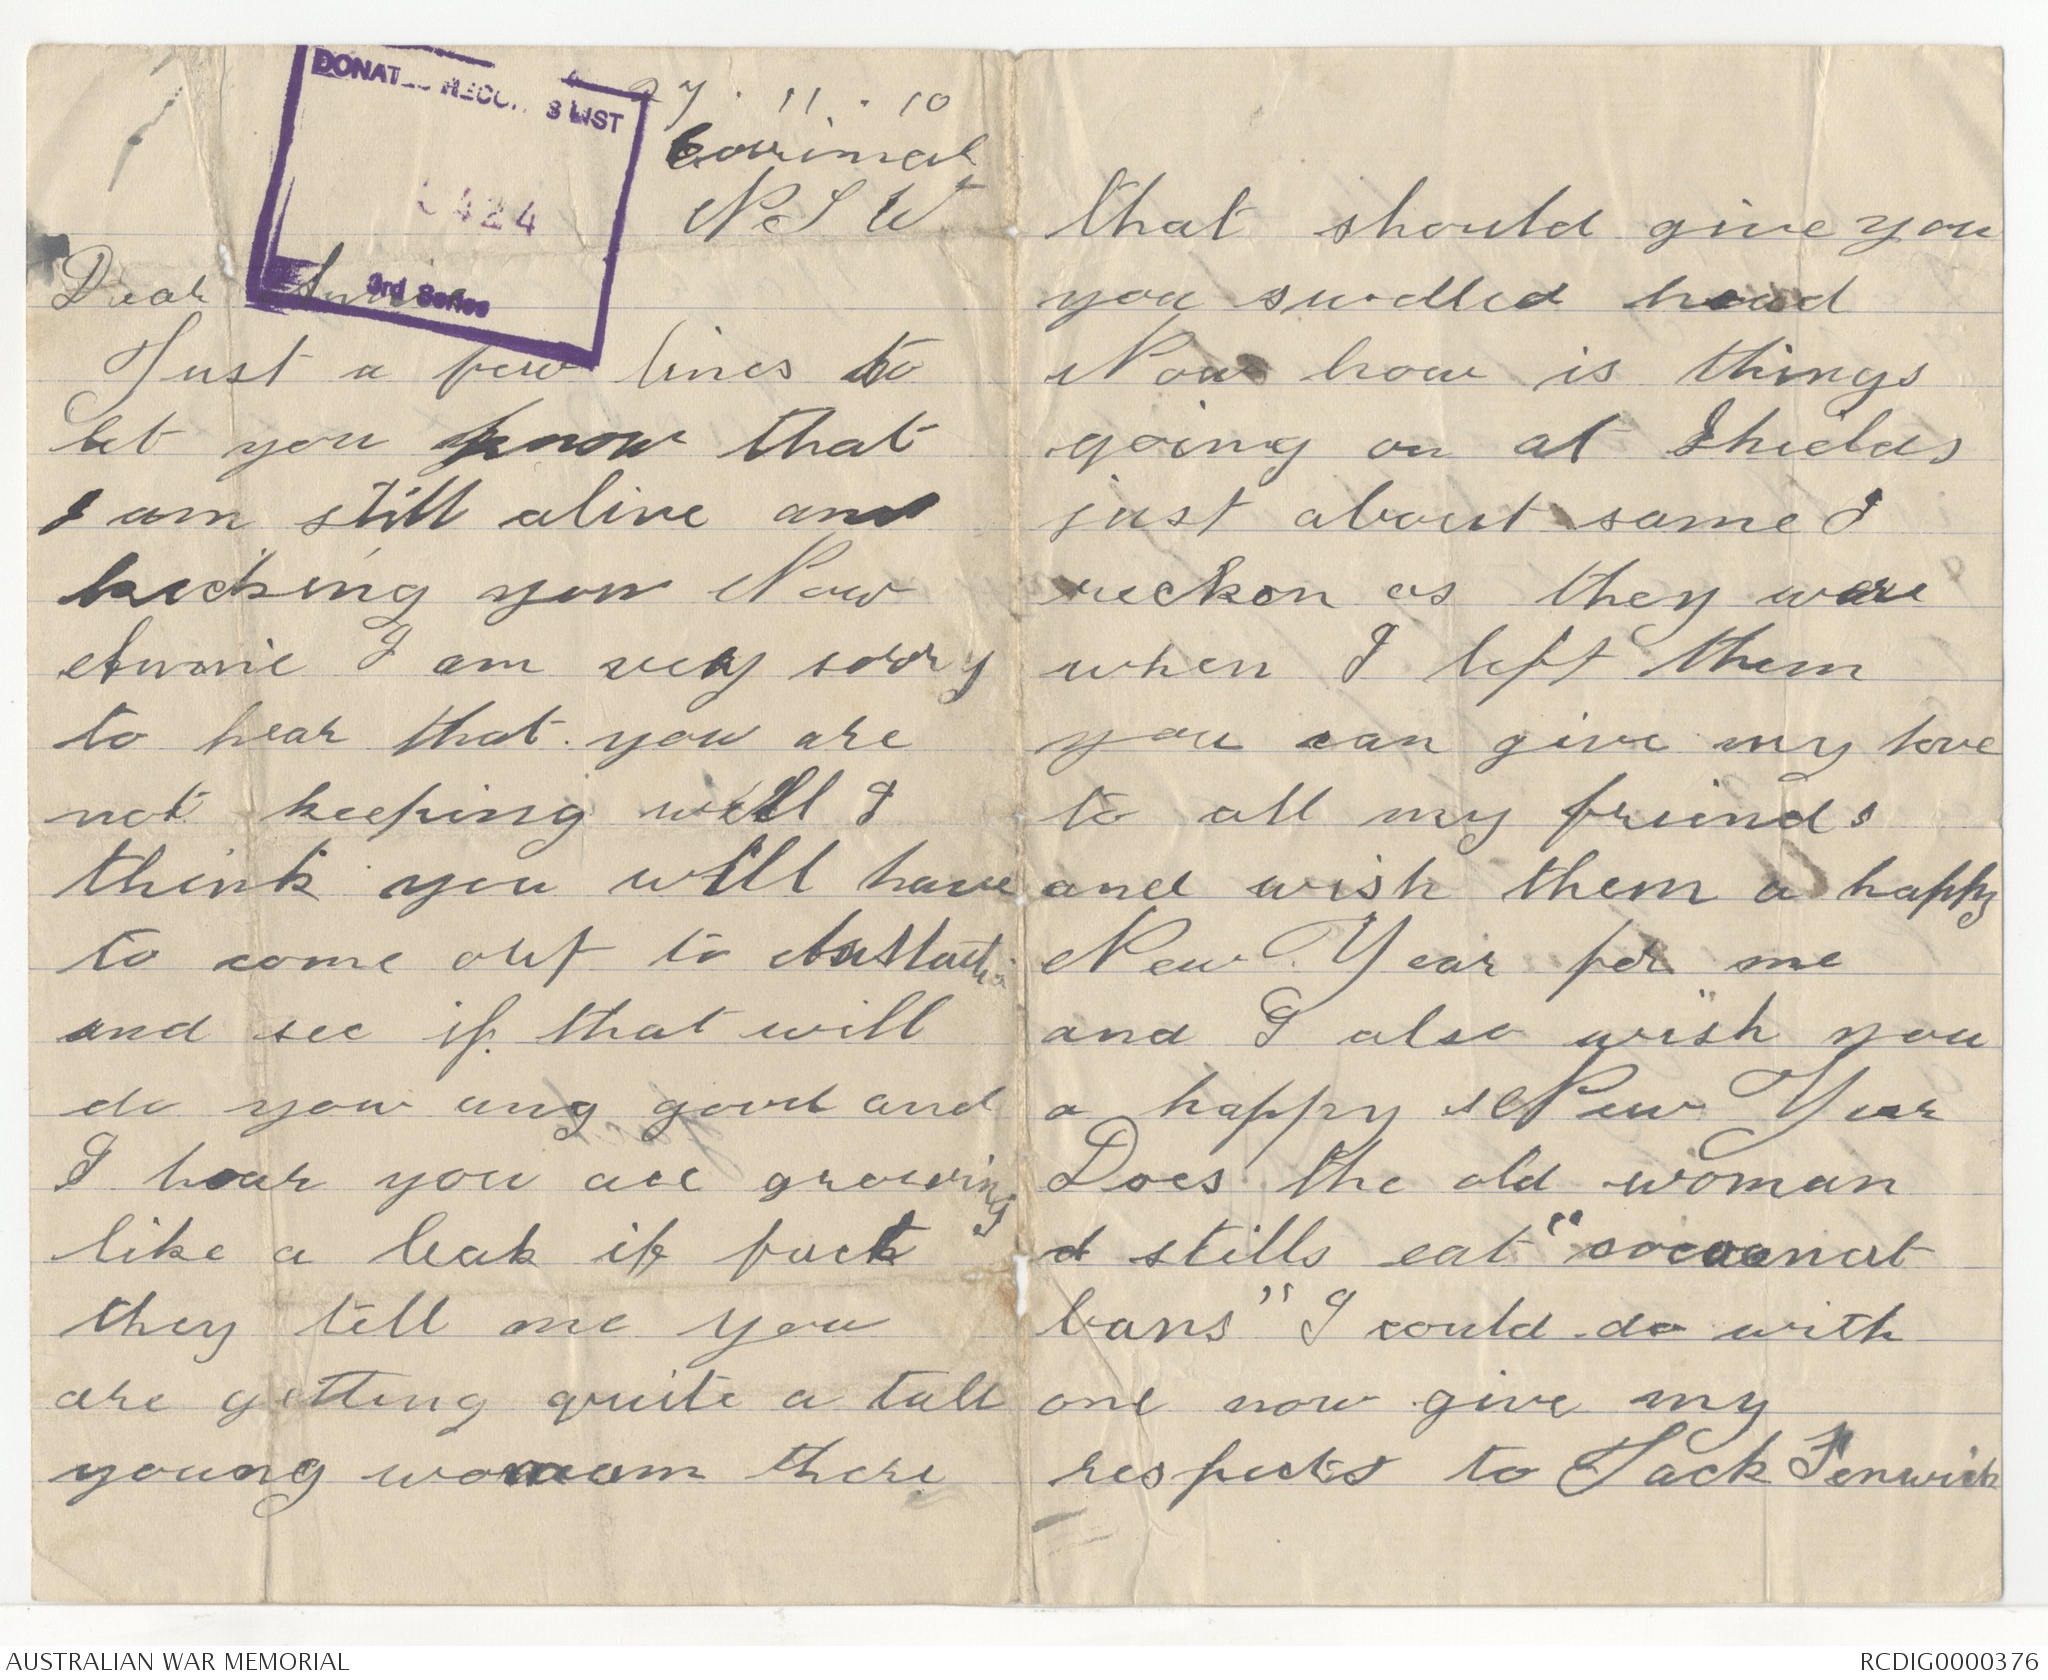 DONATED RECORDS LIST
424
3rd Series
27. 11. 10
Corrimal
N S W
Dear Annie
Just a few lines to
let you know that
I am still alive and
kicking you Now
Annie I am very sorry
to hear that you are
not keeping well I
think you will have
to come out to Australia
and see if that will
do you any good and
I hear you are growing
like a leak if fact
they tell me you
are getting quite a tall
young woman there
that should give you
you swelled head
Now how is things
going on at Shields
just about same I
reckon as they were
when I left them
you can give my love
to all my freinds
and wish them a happy
New Year for me
and I also wish you
a happy New Year
Does the old woman
stills eat "cocoanut
bans" I could do with
one now give my
respects to Jack Fenwick
AUSTRALIAN WAR MEMORIAL
RCDIG0000376